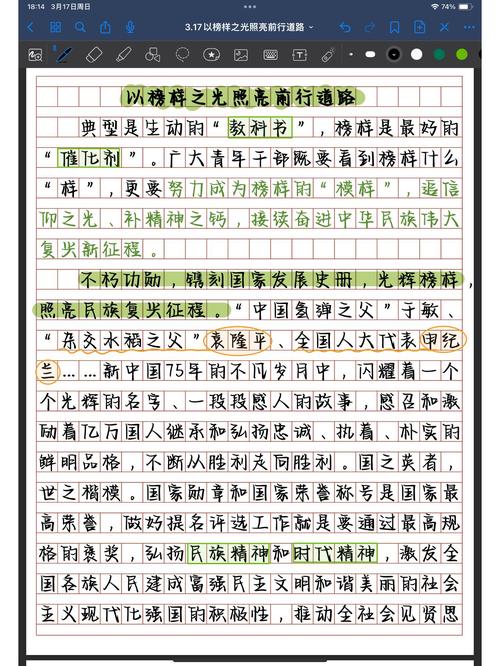 18:14 3月17日周日
74%
3.17以榜样之光照亮前行道路
以榜样之光照亮前行道路
典型是生动的“教科书”，榜样是最好的
“催化剂”。广大青年干部既要看到榜样什么
“样”，更要努力成为榜样的“模样”，追信
仰之光、补精神之钙，接续奋进中华民族伟大
复兴新征程。
不朽功勋，镌刻国家发展史册，光辉榜样，
照亮民族复兴征程。“中国氢弹之父”于敏、
“杂交水稻之父”袁隆平、全国人大代表申纪
兰……新中国75年的不凡岁月中，闪耀着一个
个光辉的名字、一段段感人的故事，感召和激
励着亿万国人继承和弘扬忠诚、执着、朴实的
鲜明品格，不断从胜利走向胜利。国之英者，
世之楷模。国家勋章和国家荣誉称号是国家最
高荣誉，做好提名评选工作就是要通过最高规
格的褒奖，弘扬民族精神和时代精神，激发全
国各族人民建成富强民主文明和谐美丽的社会
主义现代化强国的积极性，推动全社会见贤思